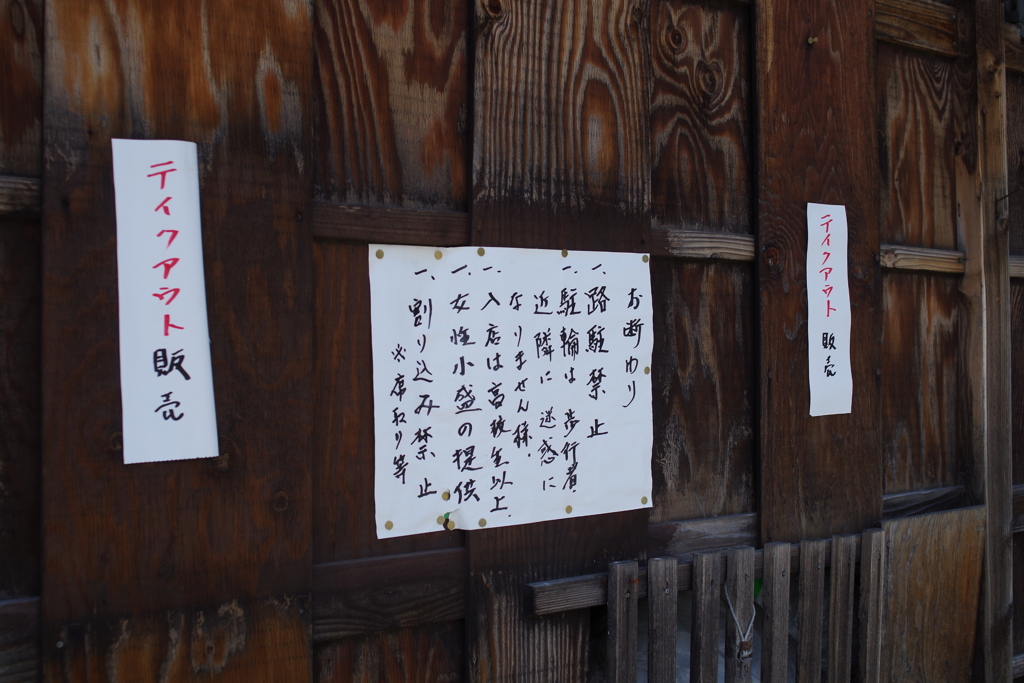 お断わり
一、路駐禁止
一、駐輪は歩行者、
近隣に迷惑に
なりません様、
一、入店は高校生以上、
一、女性小盛の提供
一、割り込み禁止
※席取り等
テイクアウト販売
テイクアウト販売